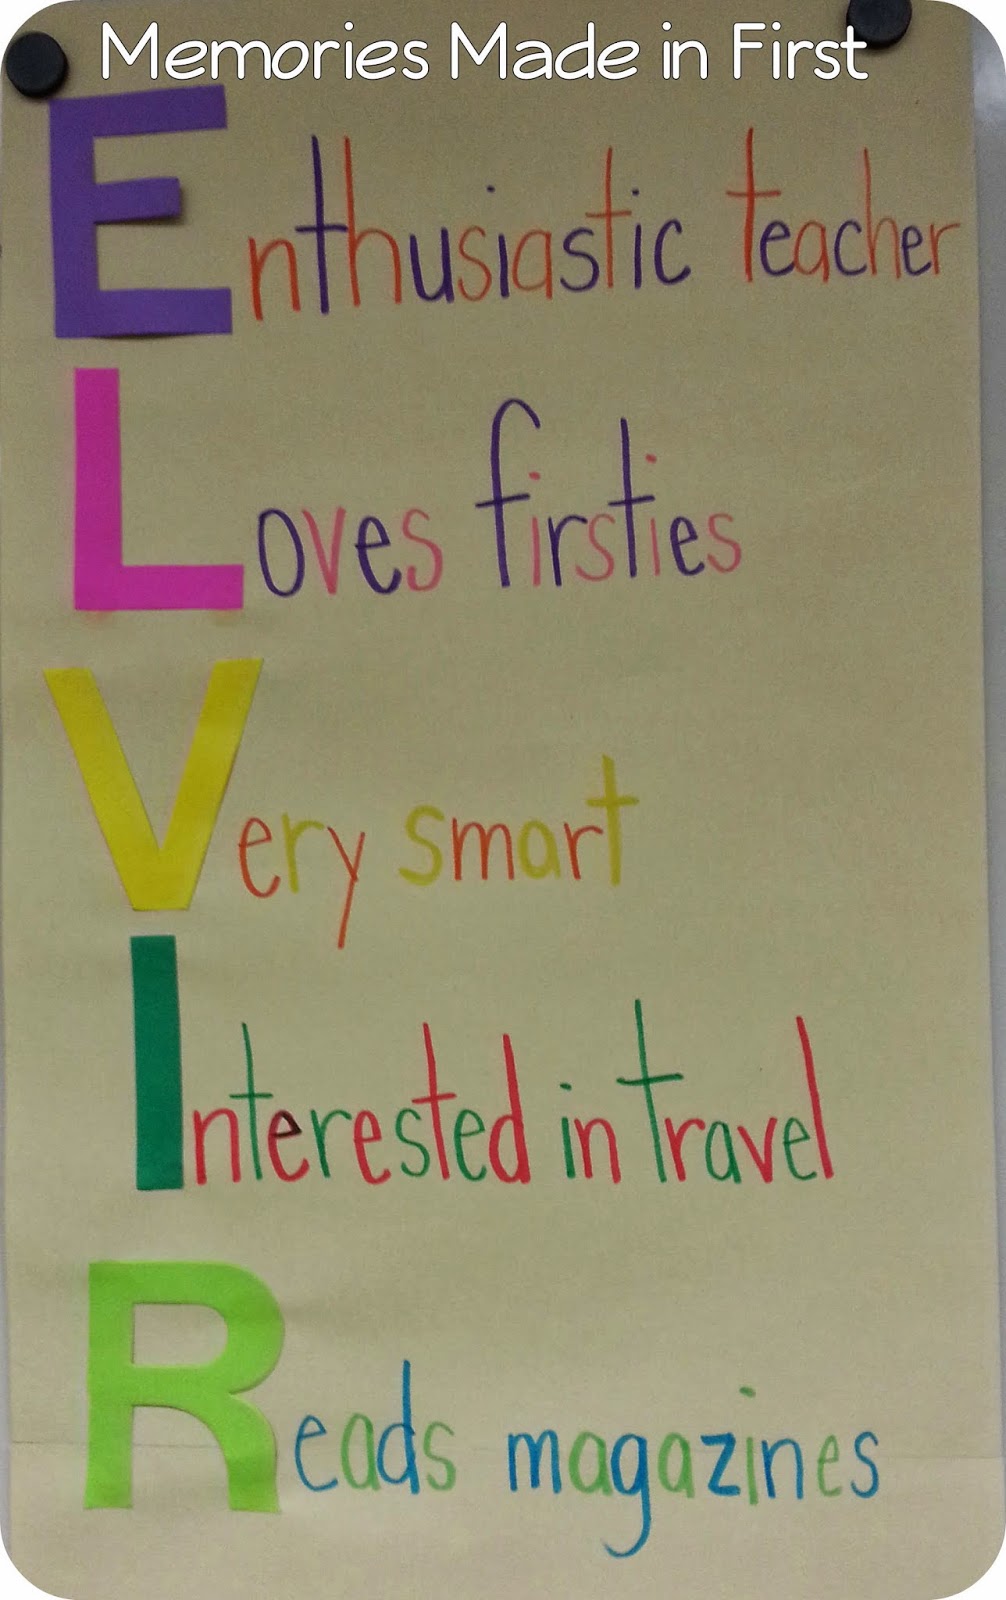 Memories Made in First
Enthusiastic teacher
Loves firsties
Very smart
Interested in travel
Reads magazines